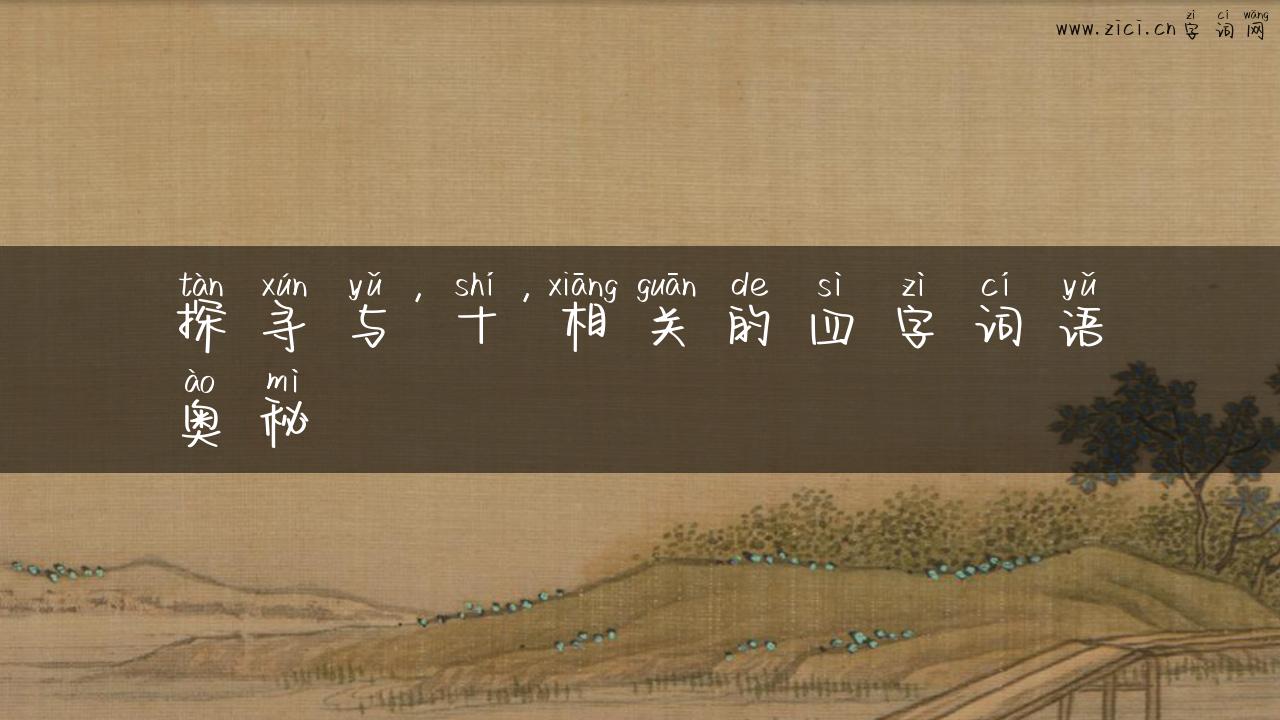 zì cí wǎng
www.zici.cn字词网
tàn xún yǔ , shí , xiāng guān de sì zì cí yǔ
探寻与十相关的四字词语
ào mì
奥秘